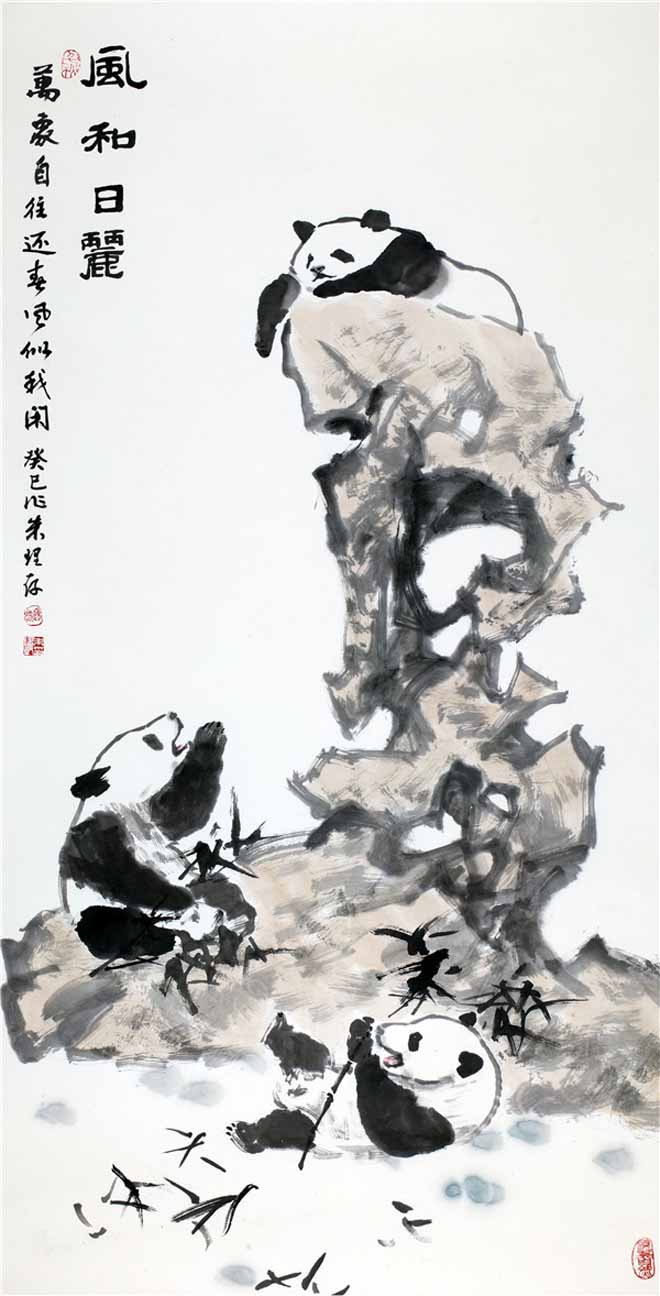 風和日麗
萬象自往还春风似我闲
癸巳作朱理存